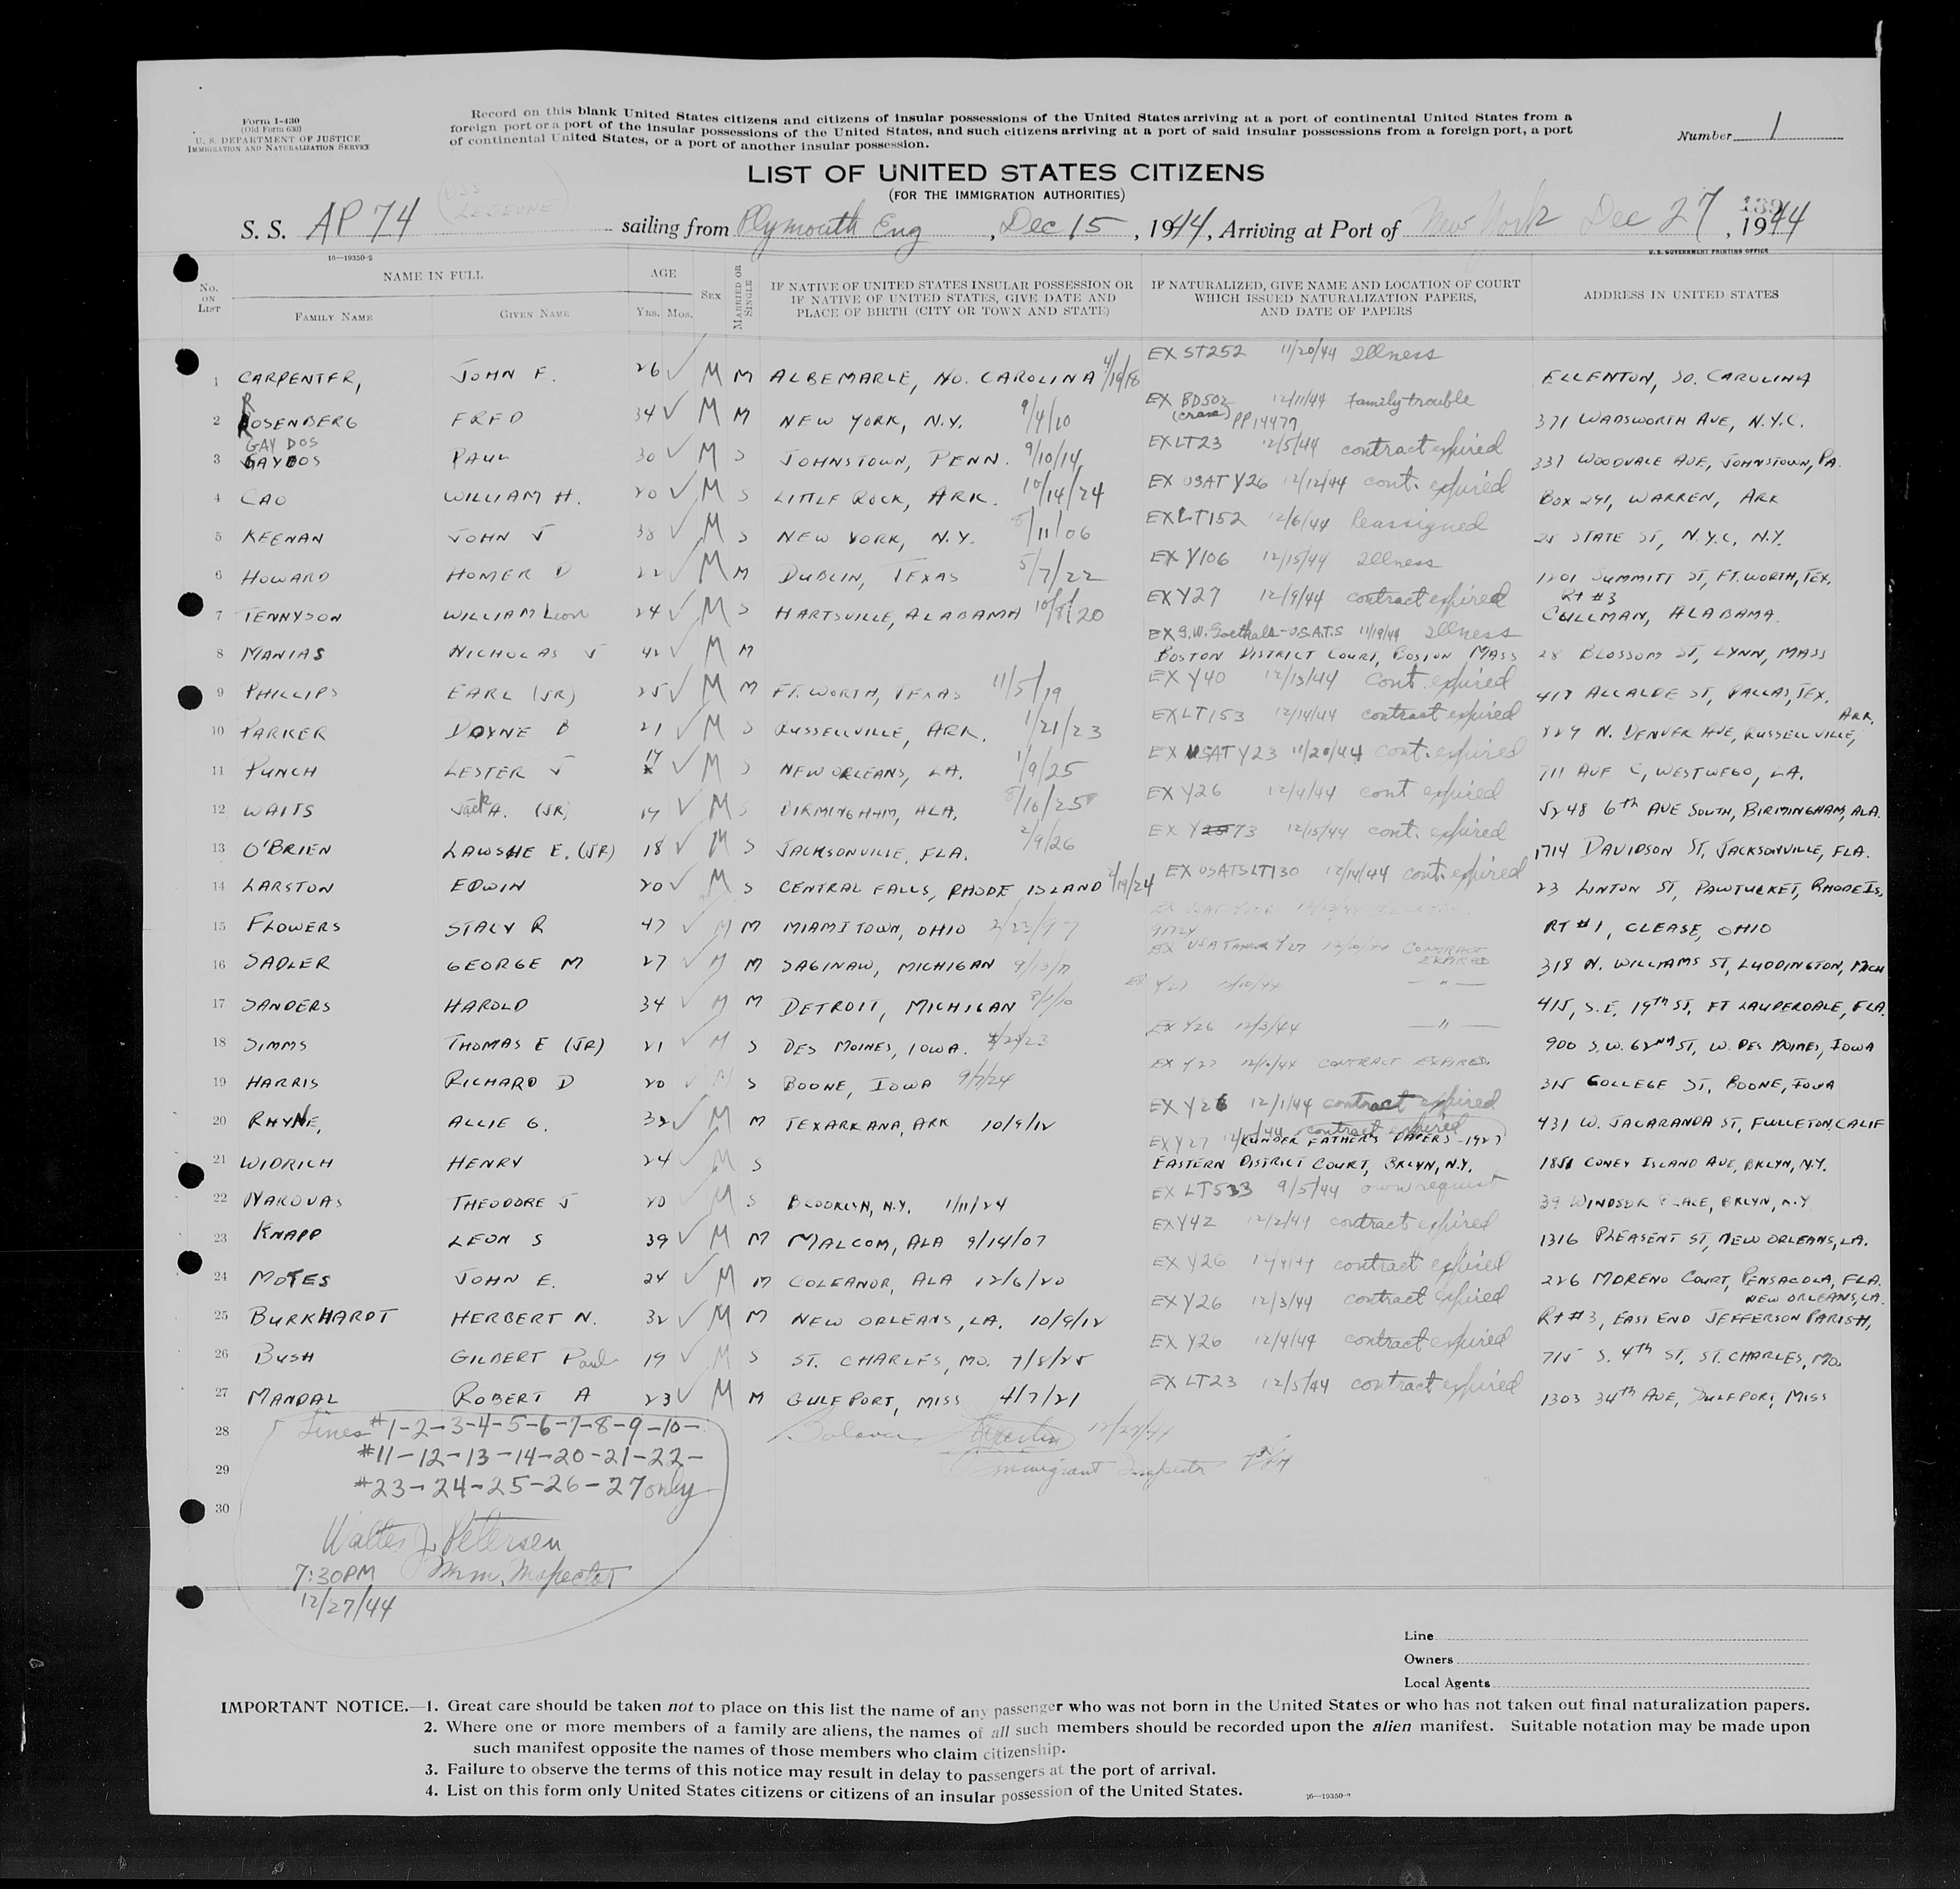 Form I-430
(Old Form 630)
U. S. DEPARTMENT OF JUSTICE
IMMIGRATION AND NATURALIZATION SERVICE
Record on this blank United States citizens and citizens of insular possessions of the United States arriving at a port of continental United States from a
foreign port or a port of the insular possessions of the United States, and such citizens arriving at a port of said insular possessions from a foreign port, a port
of continental United States, or a port of another insular possession.
Number 1
LIST OF UNITED STATES CITIZENS
(FOR THE IMMIGRATION AUTHORITIES)
USS LEJEUNE
S. S. AP 74 sailing from Plymouth Eng, Dec 15, 1944, Arriving at Port of New York Dec 27, 1944
16—19350-2 U. S. GOVERNMENT PRINTING OFFICE
No. ON LIST NAME IN FULL FAMILY NAME GIVEN NAME AGE YRS. MOS. SEX MARRIED OR SINGLE IF NATIVE OF UNITED STATES INSULAR POSSESSION OR IF NATIVE OF UNITED STATES, GIVE DATE AND PLACE OF BIRTH (CITY OR TOWN AND STATE) IF NATURALIZED, GIVE NAME AND LOCATION OF COURT WHICH ISSUED NATURALIZATION PAPERS, AND DATE OF PAPERS ADDRESS IN UNITED STATES
EX ST252 11/20/44 Illness
1 CARPENTER, JOHN F. 26 M M ALBEMARLE, NO. CAROLINA 4/19/18 ELLENTON, SO. CAROLINA
EX BD502 12/11/44 family trouble
(crane) PP14479
2 ROSENBERG FRED 34 M M NEW YORK, N.Y. 9/4/10 371 WADSWORTH AVE, N.Y.C.
GAYDOS EX LT23 12/5/44 contract expired
3 GAYDOS PAUL 30 M S JOHNSTOWN, PENN. 9/10/14 337 WOODVALE AVE, JOHNSTOWN, PA.
EX USAT Y26 12/12/44 cont. expired
4 CAO WILLIAM H. 20 M S LITTLE ROCK, ARK. 10/14/24 BOX 291, WARREN, ARK
EX LT152 12/6/44 Reassigned
5 KEENAN JOHN J 38 M S NEW YORK, N.Y. 8/11/06 25 STATE ST, N.Y.C, N.Y.
EX Y106 12/15/44 Illness
6 HOWARD HOMER D 22 M M DUBLIN, TEXAS 5/7/22 1201 SUMMITT ST, FT. WORTH, TEX.
EX Y27 12/9/44 contract expired Rt #3
7 TENNYSON WILLIAM Leon 24 M S HARTSVILLE, ALABAMA 10/8/20 CULLMAN, ALABAMA
EX G.W. Goethals-U.S.A.T.S 11/19/44 Illness
8 MANIAS NICHOLAS J 42 M M BOSTON DISTRICT COURT, BOSTON MASS 28 BLOSSOM ST, LYNN, MASS
EX Y40 12/13/44 Cont. expired
9 PHILLIPS EARL (JR) 25 M M FT. WORTH, TEXAS 11/5/19 417 ALCALDE ST, DALLAS, TEX.
EX LT153 12/14/44 contract expired ARK.
10 PARKER DOYNE B 21 M S RUSSELLVILLE, ARK. 1/21/23 N. DENVER AVE, RUSSELLVILLE,
EX USAT Y23 11/20/44 Cont. expired
11 PUNCH LESTER J 19 M S NEW ORLEANS, LA. 1/9/25 711 AVE C, WESTWEGO, LA.
EX Y26 12/4/44 cont expired
12 WAITS Jack A. (JR) 19 M S BIRMINGHAM, ALA. 8/16/25 5248 6th AVE SOUTH, BIRMINGHAM, ALA.
EX Y73 12/15/44 cont. expired
13 O'BRIEN LAWSHE E. (JR) 18 M S JACKSONVILLE, FLA. 2/9/26 1714 DAVIDSON ST, JACKSONVILLE, FLA.
EX USATS LT130 12/14/44 cont. expired
14 LARSTON EDWIN 20 M S CENTRAL FALLS, RHODE ISLAND 2/19/24 23 LINTON ST, PAWTUCKET, RHODE IS.
15 FLOWERS STACY R 47 M M MIAMITOWN, OHIO 2/23/97 RT #1, CLEASE, OHIO
Y27 CONTRACT EXPIRED
16 SADLER GEORGE M 27 M M SAGINAW, MICHIGAN 318 N. WILLIAMS ST, LUDDINGTON, MICH
EX Y27 12/10/44 — " —
17 SANDERS HAROLD 34 M M DETROIT, MICHIGAN 415, S.E. 19th ST, FT LAUDERDALE, FLA.
EX Y26 12/3/44 — " —
18 SIMMS THOMAS E (JR) 21 M S DES MOINES, IOWA. 900 S.W. 62nd ST, W. DES MOINES, IOWA
EX Y27 12/10/44 CONTRACT EXPIRED
19 HARRIS RICHARD D 20 M S BOONE, IOWA 9/7/24 315 COLLEGE ST, BOONE, IOWA
EX Y26 12/1/44 contract expired
20 RHYNE, ALLIE G. 32 M M TEXARKANA, ARK 10/9/12 431 W. JACARANDA ST, FULLETON, CALIF
EX Y27 contract expired
(UNDER FATHER'S PAPERS - 1927)
21 WIDRICH HENRY 24 M S EASTERN DISTRICT COURT, BKLYN, N.Y. 1851 CONEY ISLAND AVE, BKLYN, N.Y.
EX LT533 9/5/44 own request
22 NAROVAS THEODORE J 20 M S BROOKLYN, N.Y. 1/11/24 39 WINDSOR PLACE, BKLYN, N.Y
EX Y42 12/2/44 contract expired
23 KNAPP LEON S 39 M M MALCOM, ALA 9/14/07 1316 PLEASENT ST, NEW ORLEANS, LA.
EX Y26 contract expired
24 MOTES JOHN E. 24 M M COLEANOR, ALA 12/6/20 226 MORENO COURT, PENSACOLA, FLA.
EX Y26 12/3/44 contract expired NEW ORLEANS, LA.
25 BURKHARDT HERBERT N. 32 M M NEW ORLEANS, LA. 10/9/12 Rt #3, EAST END JEFFERSON PARISH,
EX Y26 12/4/44 contract expired
26 BUSH GILBERT Paul 19 M S ST. CHARLES, MO. 7/8/25 715 S. 4th ST, ST. CHARLES, MO.
EX LT23 12/5/44 contract expired
27 MANDAL ROBERT A 23 M M GULFPORT, MISS 4/7/21 1303 34th AVE, GULFPORT, MISS
28 Lines #1-2-3-4-5-6-7-8-9-10- Balance 12/27/44
#11-12-13-14-20-21-22-
29 Immigrant Inspector
#23-24-25-26-27 only
30
Walter J. Petersen
7:30PM Imm. Inspector
12/27/44
Line
Owners
Local Agents
IMPORTANT NOTICE.—1. Great care should be taken not to place on this list the name of any passenger who was not born in the United States or who has not taken out final naturalization papers.
2. Where one or more members of a family are aliens, the names of all such members should be recorded upon the alien manifest. Suitable notation may be made upon
such manifest opposite the names of those members who claim citizenship.
3. Failure to observe the terms of this notice may result in delay to passengers at the port of arrival.
4. List on this form only United States citizens or citizens of an insular possession of the United States.
16—19350-2